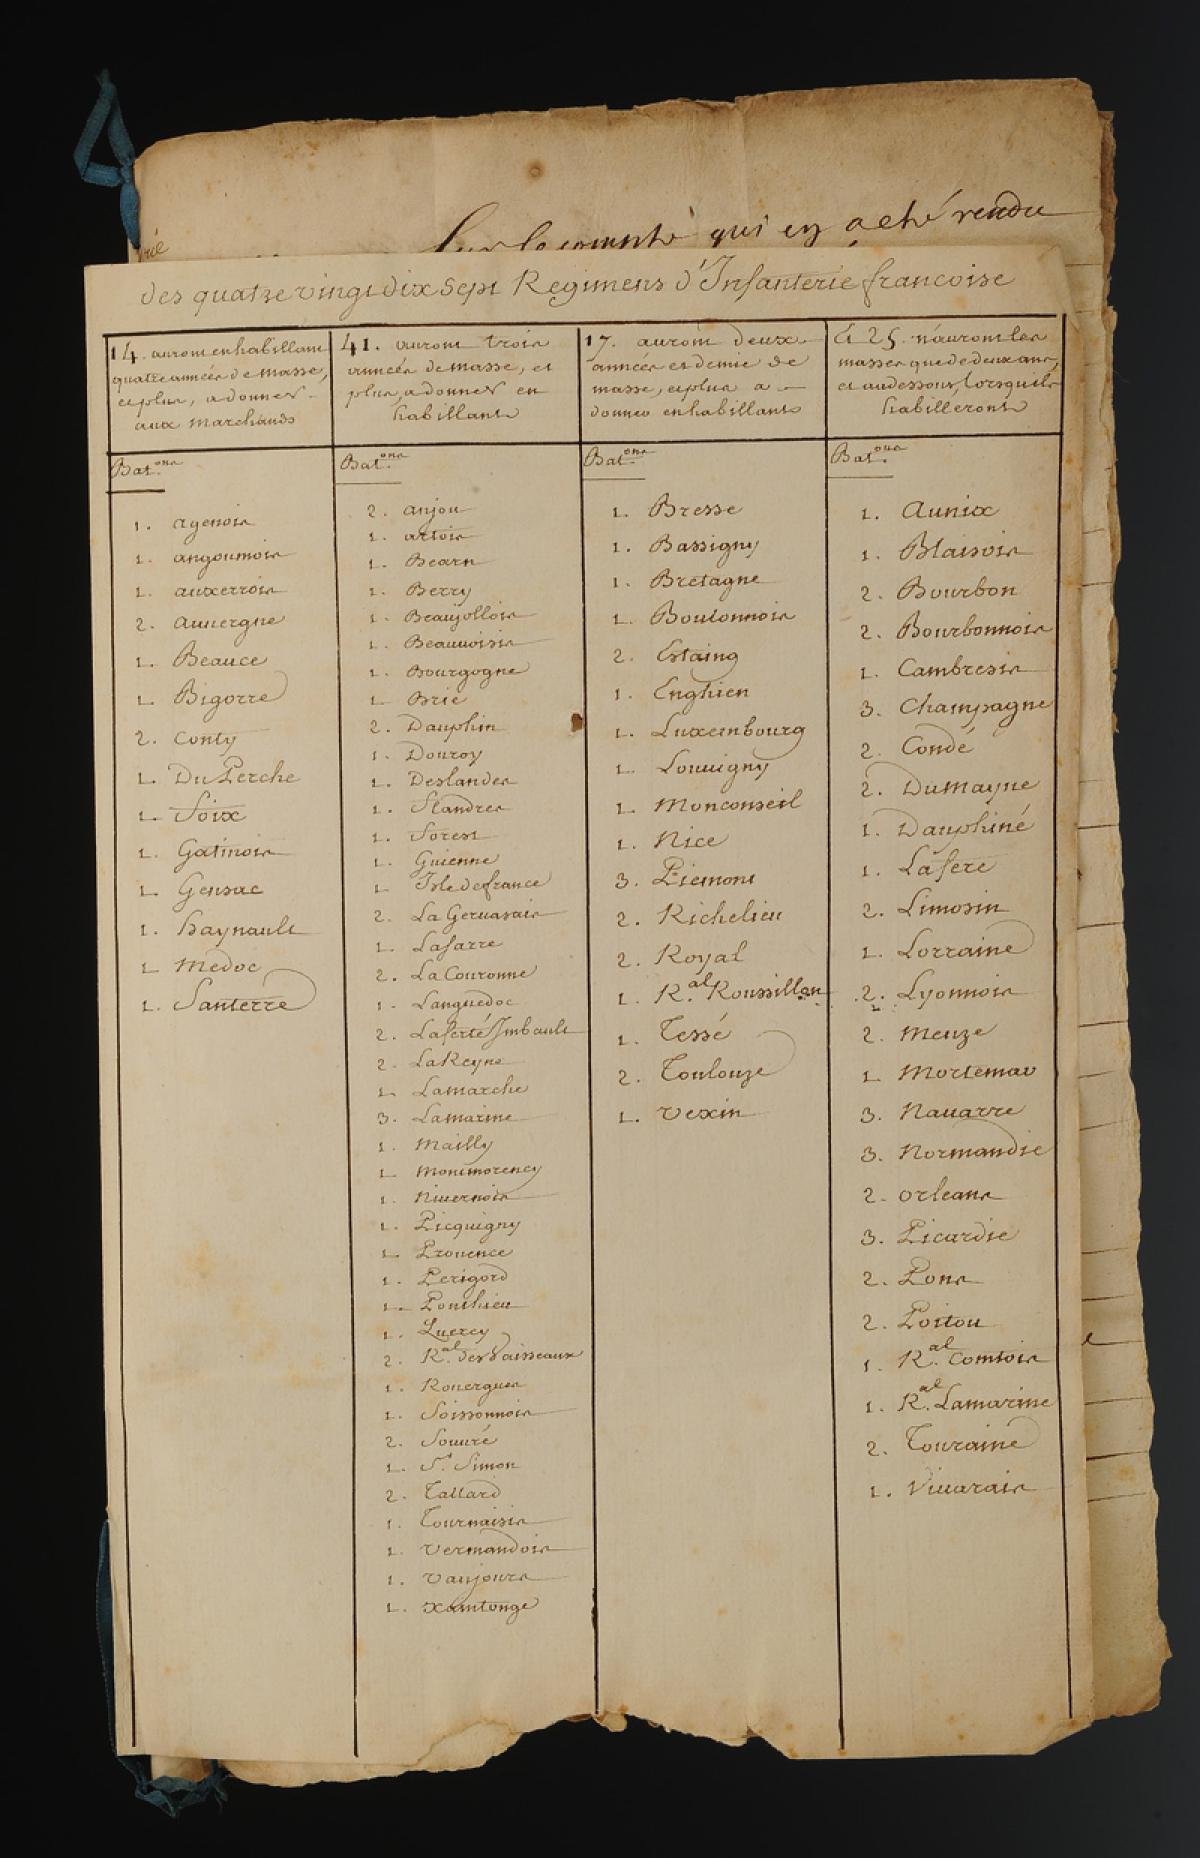 Sur le compte qui en a eté rendu
des quatre vingt dix sept Regimens d'Infanterie francoise
14. auront en habillant
quatre année de masse,
et plus, a donner
aux marchands
Bat.ons
1. agenois
1. angoumois
1. auxerrois
2. auuergne
1. Beauce
1. Bigorre
2. Conty
1. Du Perche
1. Foix
1. Gatinois
1. Gensac
1. haynault
1. Medoc
1. Santerre
41. auront trois
année de masse, et
plus, a donner en
habillant
Bat.ons
2. anjou
1. artois
1. Bearn
1. Berry
1. Beaujollois
1. Beauuoisis
1. Bourgogne
1. Brie
2. Dauphin
1. Douroy
1. Deslandes
1. Flandres
1. Forest
1. Guienne
1. Isle de france
2. La Geruasais
1. Lasarre
2. La Couronne
1. Languedoc
2. Laferté Imbault
2. La Reyne
1. Lamarche
3. Lamarine
1. Mailly
1. Montmorency
1. Niuernois
1. Picquigny
1. Prouence
1. Perigord
1. Ponthieu
1. Quercy
2. R.al des Vaisseaux
1. Rouergue
1. Soissonnois
2. Souuré
1. St. Simon
2. Tallard
1. Tournaisis
1. Vermandois
1. Vaujours
1. Xaintonge
17. auront deux
année et demie de
masse, et plus a
donner en habillant
Bat.ons
1. Bresse
1. Bassigny
1. Bretagne
1. Boulonnois
2. Estaing
1. Enghien
1. Luxembourg
1. Louuigny
1. Monconseil
1. Nice
3. Piemont
2. Richelieu
2. Royal
1. R.al Roussillon
1. Tessé
2. Toulouze
1. Vexin
Et 25. n'auront les
masses que de deux ans,
et au dessous, lorsquils
habilleront
Bat.ons
1. Aunix
1. Blaisois
2. Bourbon
2. Bourbonnois
1. Cambresis
3. Champagne
2. Condé
2. Dumayne
1. Dauphiné
1. Lafere
2. Limosin
1. Lorraine
2. Lyonnois
2. Meuze
1. Mortemar
3. Nauarre
3. Normandie
2. orleans
3. Picardie
2. Pons
2. Poitou
1. R.al Comtois
1. R.al Lamarine
2. Touraine
1. Viuarais